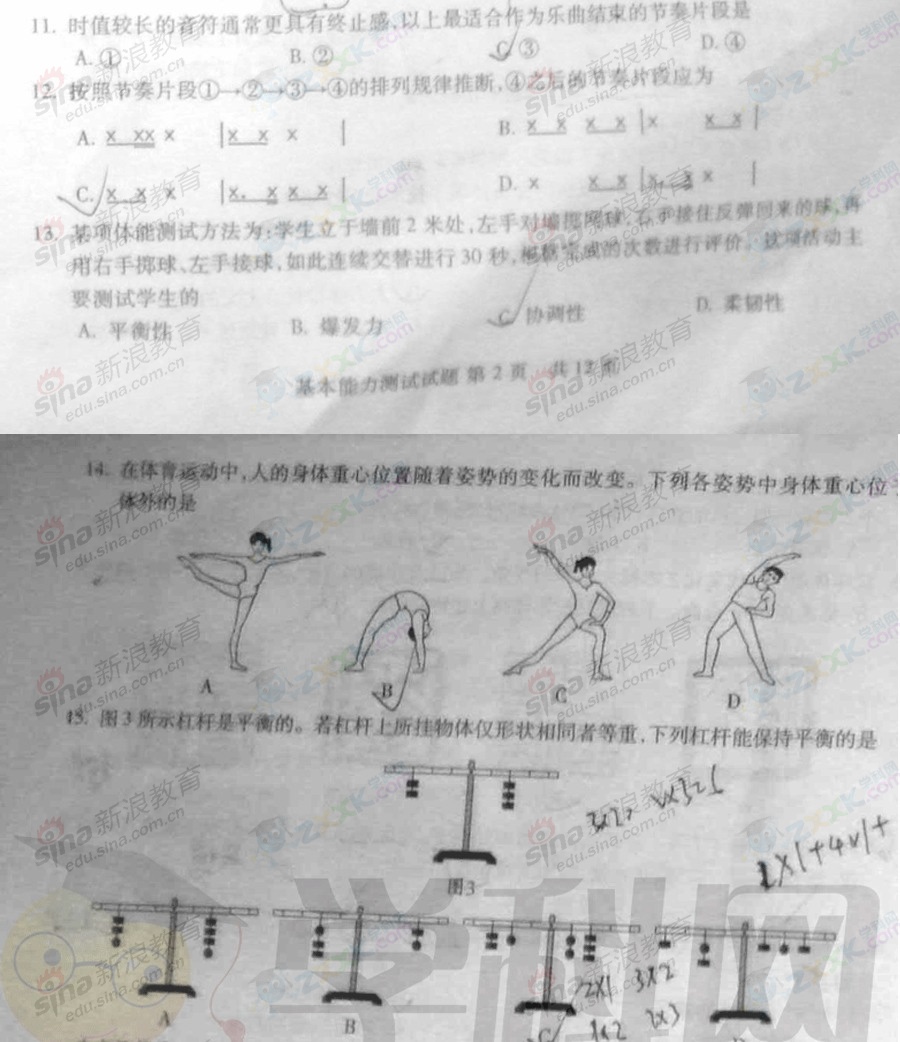 11. 时值较长的音符通常更具有终止感,以上最适合作为乐曲结束的节奏片段是
A. ① B. ② C. ③ D. ④
12. 按照节奏片段①→②→③→④的排列规律推断,④之后的节奏片段应为
A. x xx x | x x x |
B. x x x x | x x x |
C. x x x | x. x x x |
D. x x x | x. x x |
13. 某项体能测试方法为:学生立于墙前2米处,左手对墙掷网球,右手接住反弹回来的球,再
用右手掷球、左手接球,如此连续交替进行30秒,根据完成的次数进行评价。这项活动主
要测试学生的
A. 平衡性 B. 爆发力 C. 协调性 D. 柔韧性
基本能力测试试题 第2页 共12页
14. 在体育运动中,人的身体重心位置随着姿势的变化而改变。下列各姿势中身体重心位于
体外的是
A B C D
15. 图3所示杠杆是平衡的。若杠杆上所挂物体仅形状相同者等重,下列杠杆能保持平衡的是
图3
2X1+4X1+
A B C
2X1 3X2
1X2 2X3
学科网
sina新浪教育
edu.sina.com.cn
ZXXK.com学科网